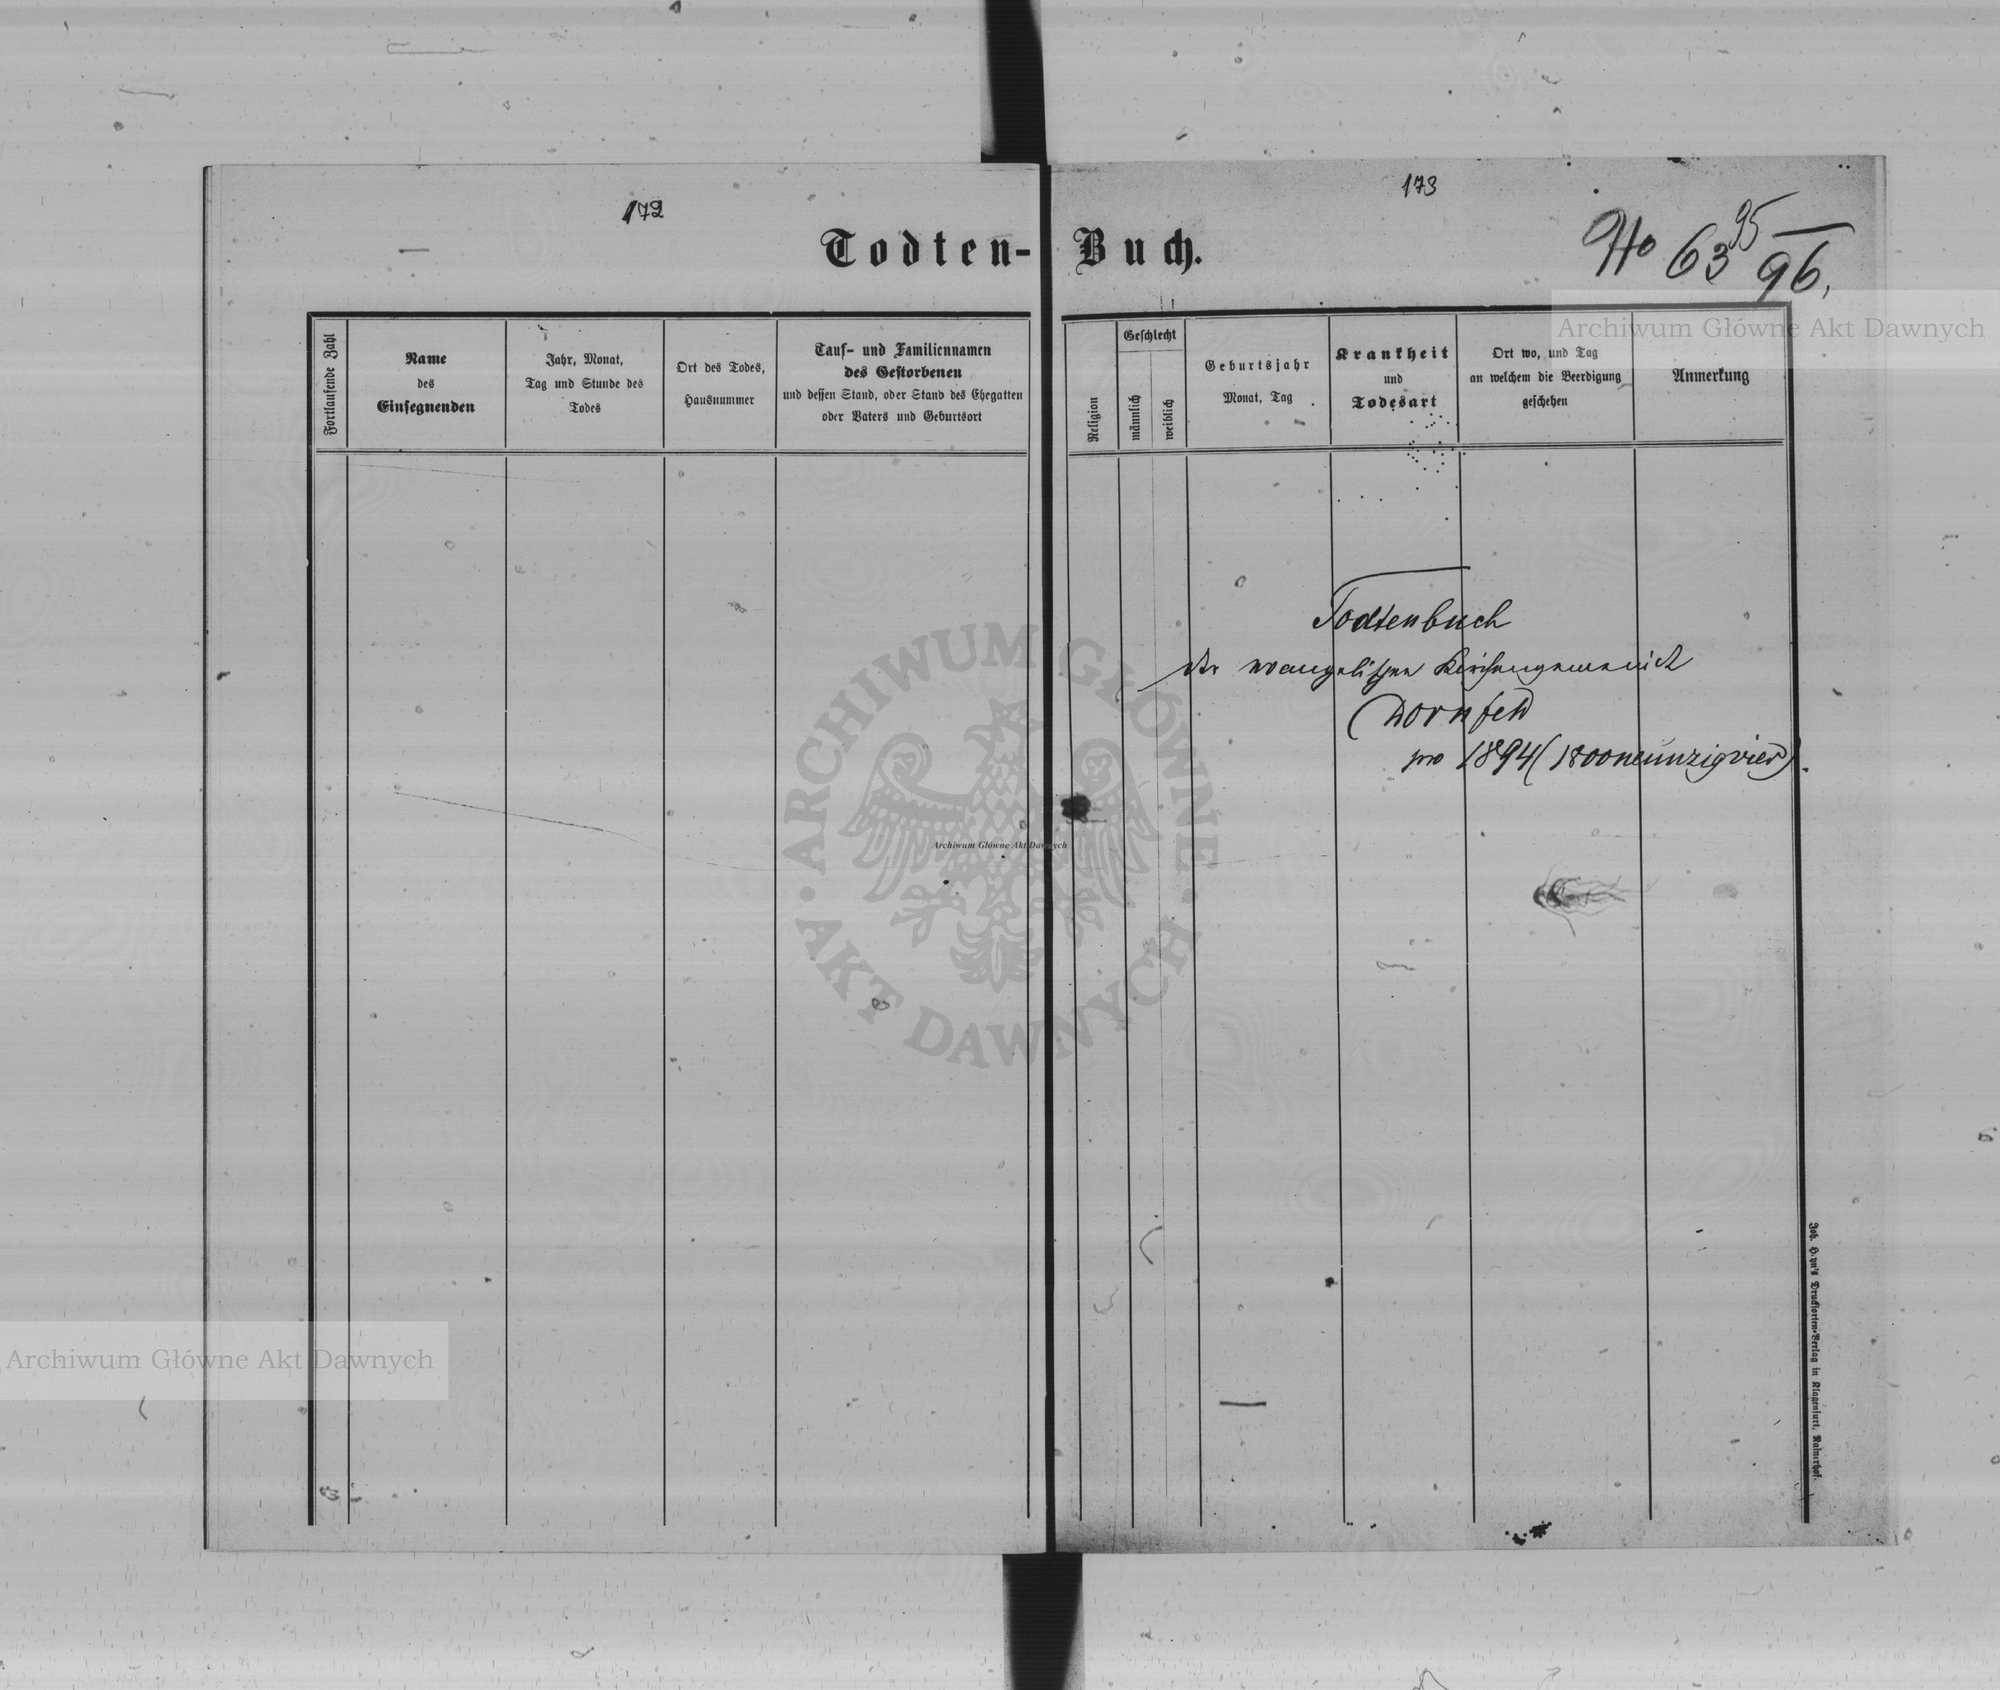 172
173
No 63 95/96.
Todten-Buch.
Fortlaufende Zahl
Name
des
Einsegnenden
Jahr, Monat,
Tag und Stunde des
Todes
Ort des Todes,
Hausnummer
Tauf- und Familiennamen
des Gestorbenen
und dessen Stand, oder Stand des Ehegatten
oder Vaters und Geburtsort
Religion
Geschlecht
männlich
weiblich
Geburtsjahr
Monat, Tag
Krankheit
und
Todesart
Ort wo, und Tag
an welchem die Beerdigung
geschehen
Anmerkung
Todtenbuch
der evangelischen Kirchengemeinde
Dornfeld
pro 1894 (1800neunzigvier).
Joh. Heyn's Drucksorten-Verlag in Klagenfurt, Rainerhof.
Archiwum Główne Akt Dawnych
ARCHIWUM GŁÓWNE · AKT DAWNYCH ·
Archiwum Główne Akt Dawnych
Archiwum Główne Akt Dawnych